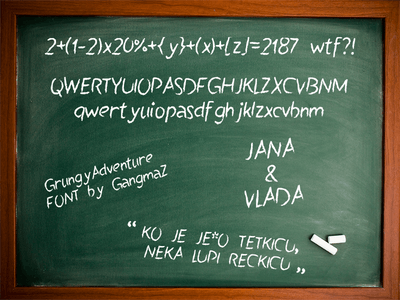 2+(1-2)x20%+{y}+(x)+[z]=2187 wtf?!
QWERTYUIOPASDFGHJKLZXCVBNM
qwertyuiopasdfghjklzxcvbnm
GrungyAdventure
FONT by GangmaZ
JANA
&
VLADA
“ KO JE JE*O TETKICU,
NEKA LUPI RECKICU „